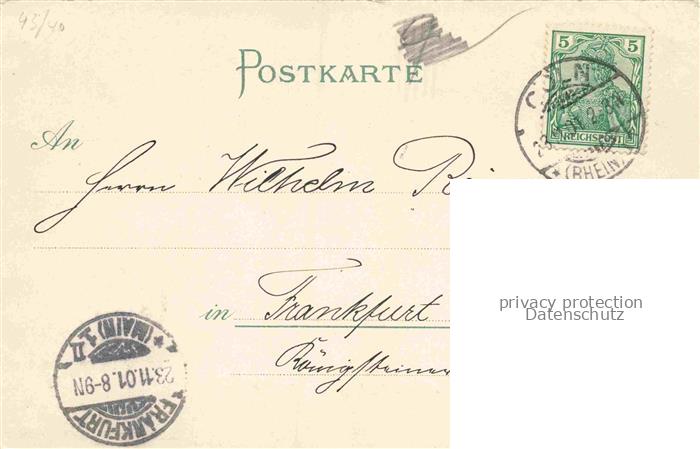 93/40
POSTKARTE
5 5
REICHSPOST
CÖLN
* (RHEIN)
An
Herrn Wilhelm
privacy protection
Datenschutz
in Frankfurt
Königsteiner
FRANKFURT
* (MAIN) 1.
23.11.01.8-9N